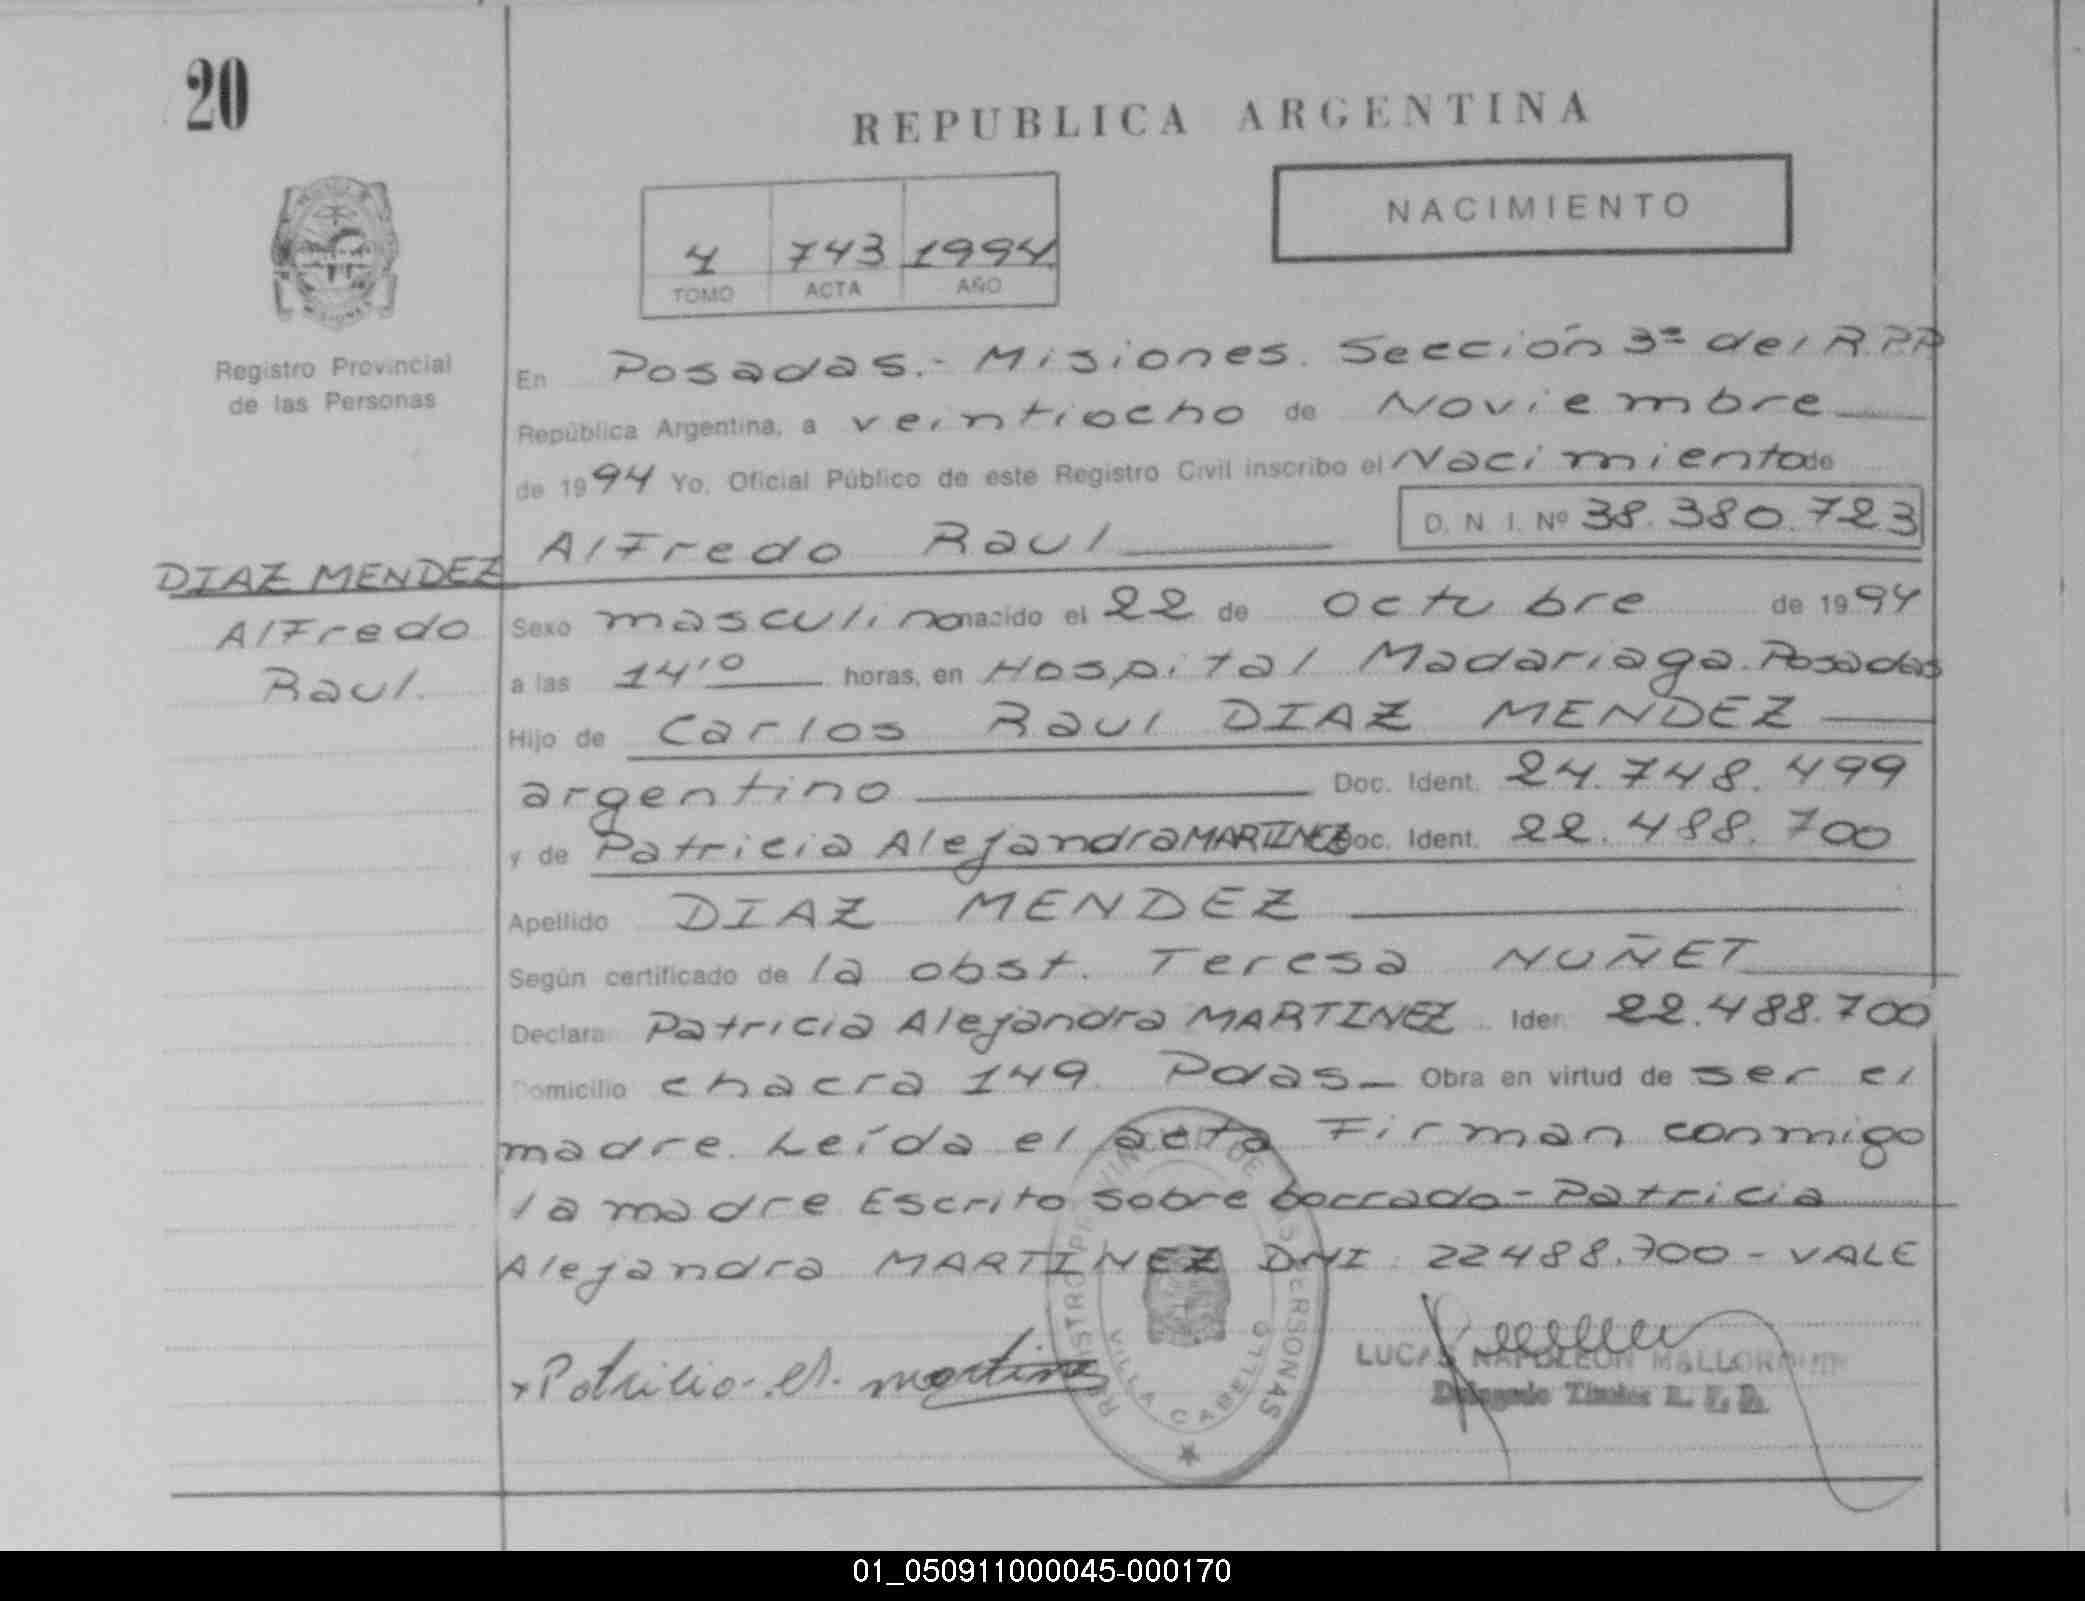 20
REPUBLICA ARGENTINA
NACIMIENTO
4 743 1994
TOMO ACTA AÑO
Registro Provincial
de las Personas
En Posadas.- Misiones. Sección 3ª del R.P.P
República Argentina, a veintiocho de Noviembre
de 1994 Yo, Oficial Público de este Registro Civil inscribo el Nacimiento de
D. N. I. Nº 38.380.723
Alfredo Raul
DIAZ MENDEZ
Alfredo
Raul.
Sexo masculino nacido el 22 de octubre de 1994
a las 14'10 horas, en Hospital Madariaga. Posadas
Hijo de Carlos Raul DIAZ MENDEZ
argentino Doc. Ident. 24.748.499
y de Patricia Alejandra MARTINEZ Doc. Ident. 22.488.700
Apellido DIAZ MENDEZ
Según certificado de la obst. Teresa NUÑET
Declara Patricia Alejandra MARTINEZ Iden 22.488.700
Domicilio chacra 149 Pdas_ Obra en virtud de ser el
madre. Leída el acta Firman conmigo
la madre Escrito sobre borrado - Patricia
Alejandra MARTINEZ DNI 22488.700 - VALE
Patricia A. Martinez
REGISTRO PROVINCIAL DE LAS PERSONAS
VILLA CABELLO
LUCAS NAPOLEON MALLORQUIN
Delegado Titular R. P. P.
01_050911000045-000170